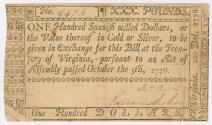 No. XXX. POUNDS.
ONE Hundred Spanish milled Dollars, or
the Value thereof in Gold or Silver, to be
given in Exchange for this Bill at the Trea-
sury of Virginia, pursuant to an Act of
Assembly passed October the 5th, 1778.
One Hundred DOLLARS.